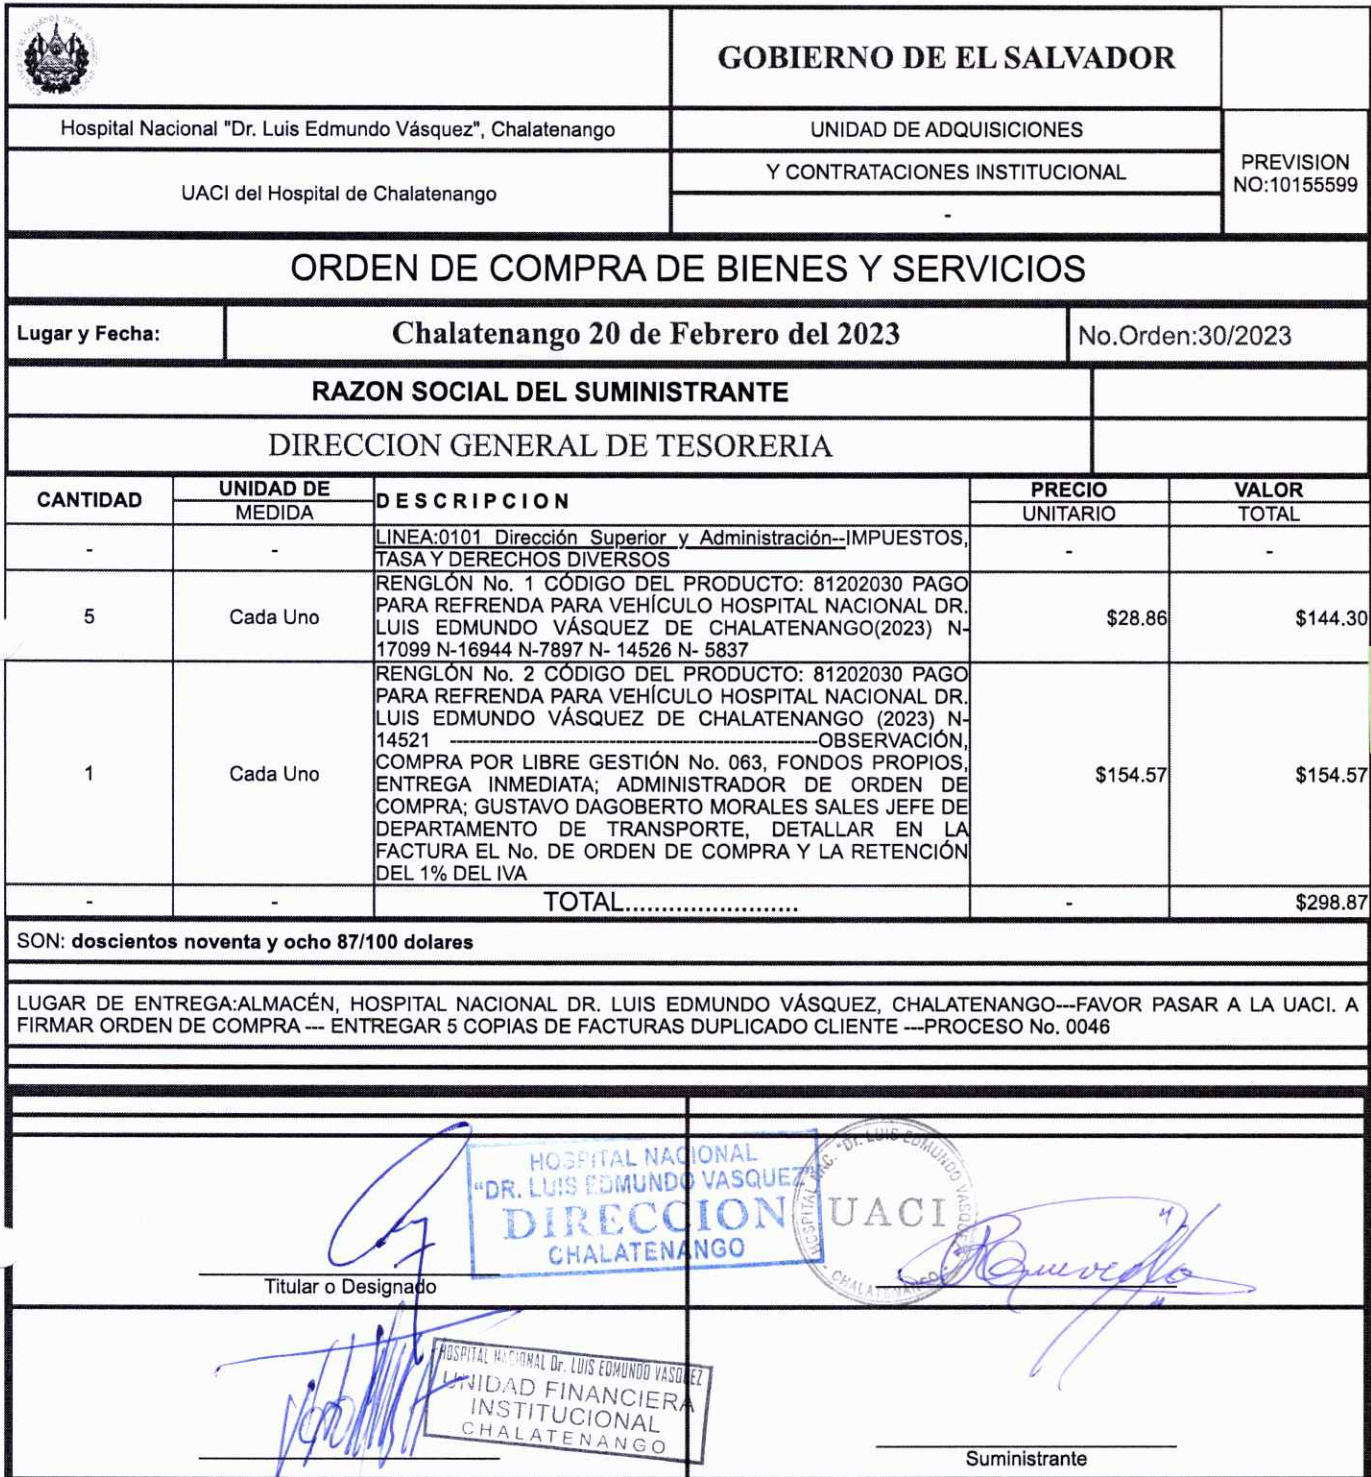 GOBIERNO DE EL SALVADOR
Hospital Nacional "Dr. Luis Edmundo Vásquez", Chalatenango
UNIDAD DE ADQUISICIONES
Y CONTRATACIONES INSTITUCIONAL
PREVISION
NO:10155599
UACI del Hospital de Chalatenango
-
ORDEN DE COMPRA DE BIENES Y SERVICIOS
Lugar y Fecha:
Chalatenango 20 de Febrero del 2023
No.Orden:30/2023
RAZON SOCIAL DEL SUMINISTRANTE
DIRECCION GENERAL DE TESORERIA
CANTIDAD
UNIDAD DE
MEDIDA
DESCRIPCION
PRECIO
UNITARIO
VALOR
TOTAL
-
-
LINEA:0101 Dirección Superior y Administración--IMPUESTOS,
TASA Y DERECHOS DIVERSOS
-
-
5
Cada Uno
RENGLÓN No. 1 CÓDIGO DEL PRODUCTO: 81202030 PAGO
PARA REFRENDA PARA VEHÍCULO HOSPITAL NACIONAL DR.
LUIS EDMUNDO VÁSQUEZ DE CHALATENANGO(2023) N-
17099 N-16944 N-7897 N- 14526 N- 5837
$28.86
$144.30
1
Cada Uno
RENGLÓN No. 2 CÓDIGO DEL PRODUCTO: 81202030 PAGO
PARA REFRENDA PARA VEHÍCULO HOSPITAL NACIONAL DR.
LUIS EDMUNDO VÁSQUEZ DE CHALATENANGO (2023) N-
14521 -------------------------------------------------------OBSERVACIÓN,
COMPRA POR LIBRE GESTIÓN No. 063, FONDOS PROPIOS,
ENTREGA INMEDIATA; ADMINISTRADOR DE ORDEN DE
COMPRA; GUSTAVO DAGOBERTO MORALES SALES JEFE DE
DEPARTAMENTO DE TRANSPORTE, DETALLAR EN LA
FACTURA EL No. DE ORDEN DE COMPRA Y LA RETENCIÓN
DEL 1% DEL IVA
$154.57
$154.57
-
-
TOTAL........................
-
$298.87
SON: doscientos noventa y ocho 87/100 dolares
LUGAR DE ENTREGA:ALMACÉN, HOSPITAL NACIONAL DR. LUIS EDMUNDO VÁSQUEZ, CHALATENANGO---FAVOR PASAR A LA UACI. A
FIRMAR ORDEN DE COMPRA --- ENTREGAR 5 COPIAS DE FACTURAS DUPLICADO CLIENTE ---PROCESO No. 0046
HOSPITAL NACIONAL
"DR. LUIS EDMUNDO VASQUEZ"
DIRECCION
CHALATENANGO
HOSPITAL NAC. "Dr. LUIS EDMUNDO VASQUEZ"
UACI
CHALATENANGO
Titular o Designado
HOSPITAL NACIONAL Dr. LUIS EDMUNDO VASQUEZ
UNIDAD FINANCIERA
INSTITUCIONAL
CHALATENANGO
Suministrante